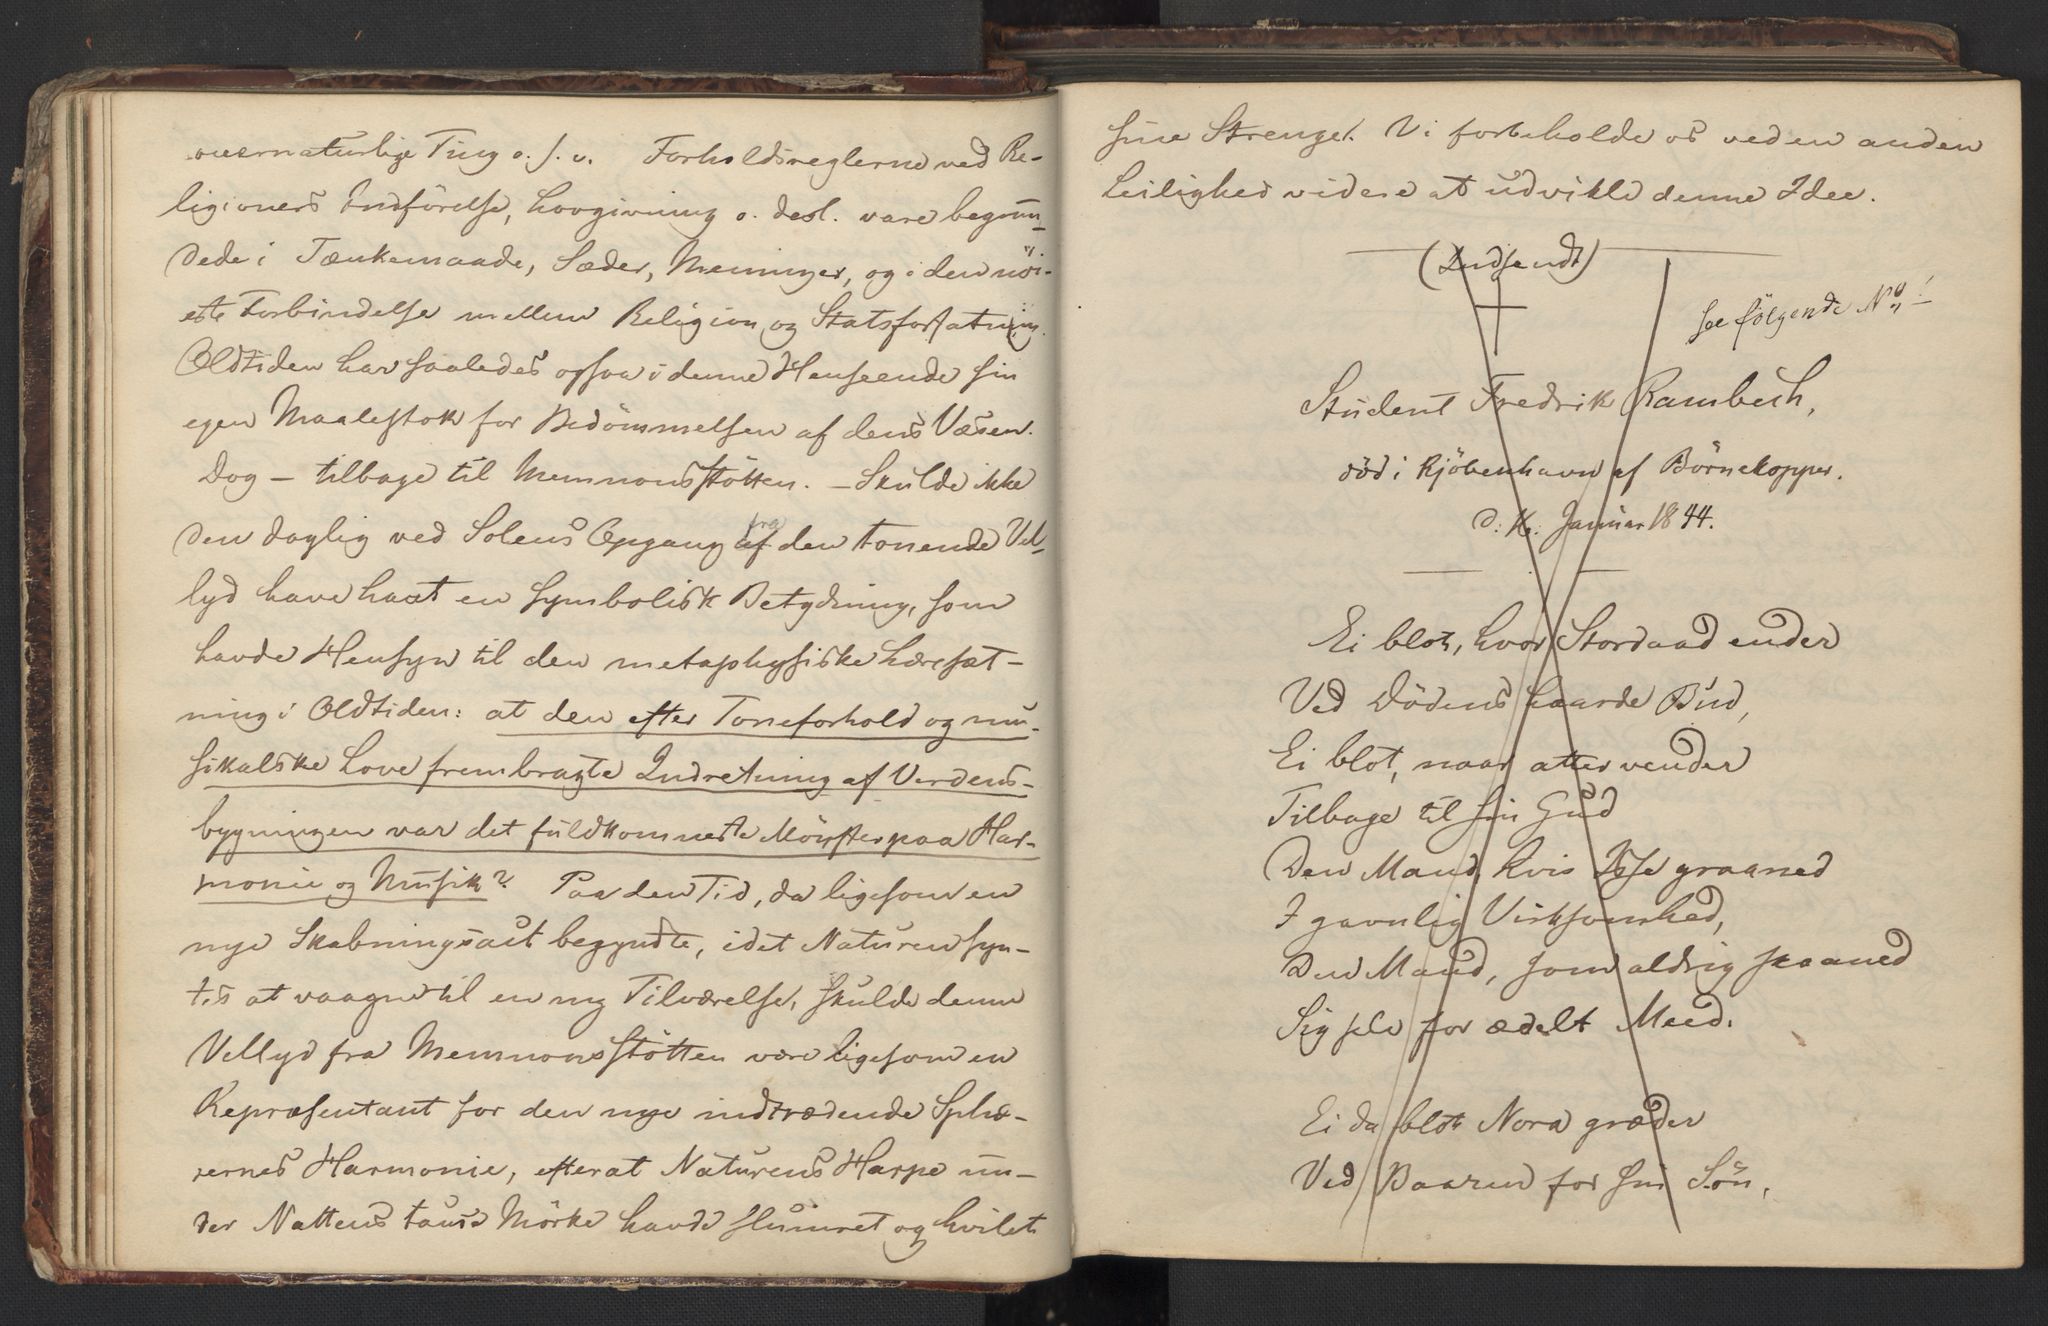 overnaturlige Ting o. s. v. Forholdsreglerne ved Re-
ligioners Indförelse, Lovgivning o. desl. vare begrun-
dede i Tænkemaade, Sæder, Meninger, og i den nöi-
este Forbindelse mellem Religion og Statsforfatning.
Oldtiden har saaledes ogsaa i denne Henseende sin
egen Maalestok for Bedömmelsen af dens Væsen.
Dog – tilbage til Memnonsstötten. – Skulde ikke
den daglig ved Solens Opgang af fra den tonende Vel-
lyd have havt en symbolisk Betydning, som
havde Hensyn til den metaphysiske Læresæt-
ning i Oldtiden: at den efter Toneforhold og mu-
sikalske Love frembragte Indretning af Verdens-
bygningen var det fuldkomneste Mönster paa Har-
monie og Musik? Paa den Tid, da ligesom en
nye Skabningsact begyndte, idet Naturen syn-
tes at vaagne til en ny Tilværelse, skulde denne
Vellyd fra Memnonsstötten være ligesom en
Repræsentant for den nye indtrædende Sphæ-
rernes Harmonie, efterat Naturens Harpe un-
der Nattens tause Mörke havde slumret og hvilet
sine Strenge. Vi forbeholde os ved en anden
Leilighed videre at udvikle denne Idee.
(Indsendt)
see fölgende No!
Student Fredrik Rambech,
död i Kjöbenhavn af Börnekopper.
d. 16. Januar 1844.
Ei blot, hvor Stordaad ender
Ved Dödens haarde Bud,
Ei blot, naar atter vender
Tilbage til sin Gud
Den Mand, hvis Isse graaned
I gavnlig Virksomhed,
Den Mand, som aldrig skaaned
Sig selv for ædelt Meed.
Ei da blot Nora græder
Ved Baaren for sin Sön,